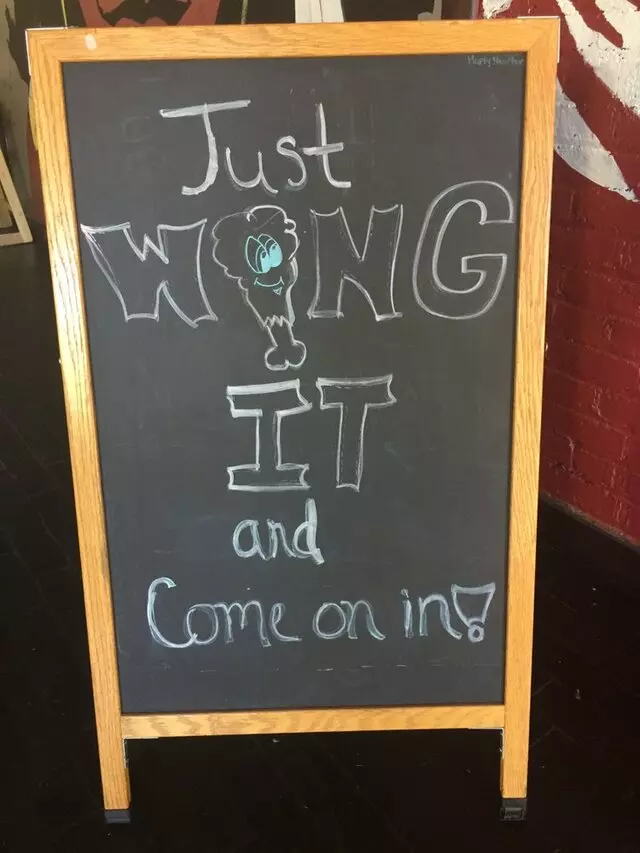 Just
WING
IT
and
Come on in!